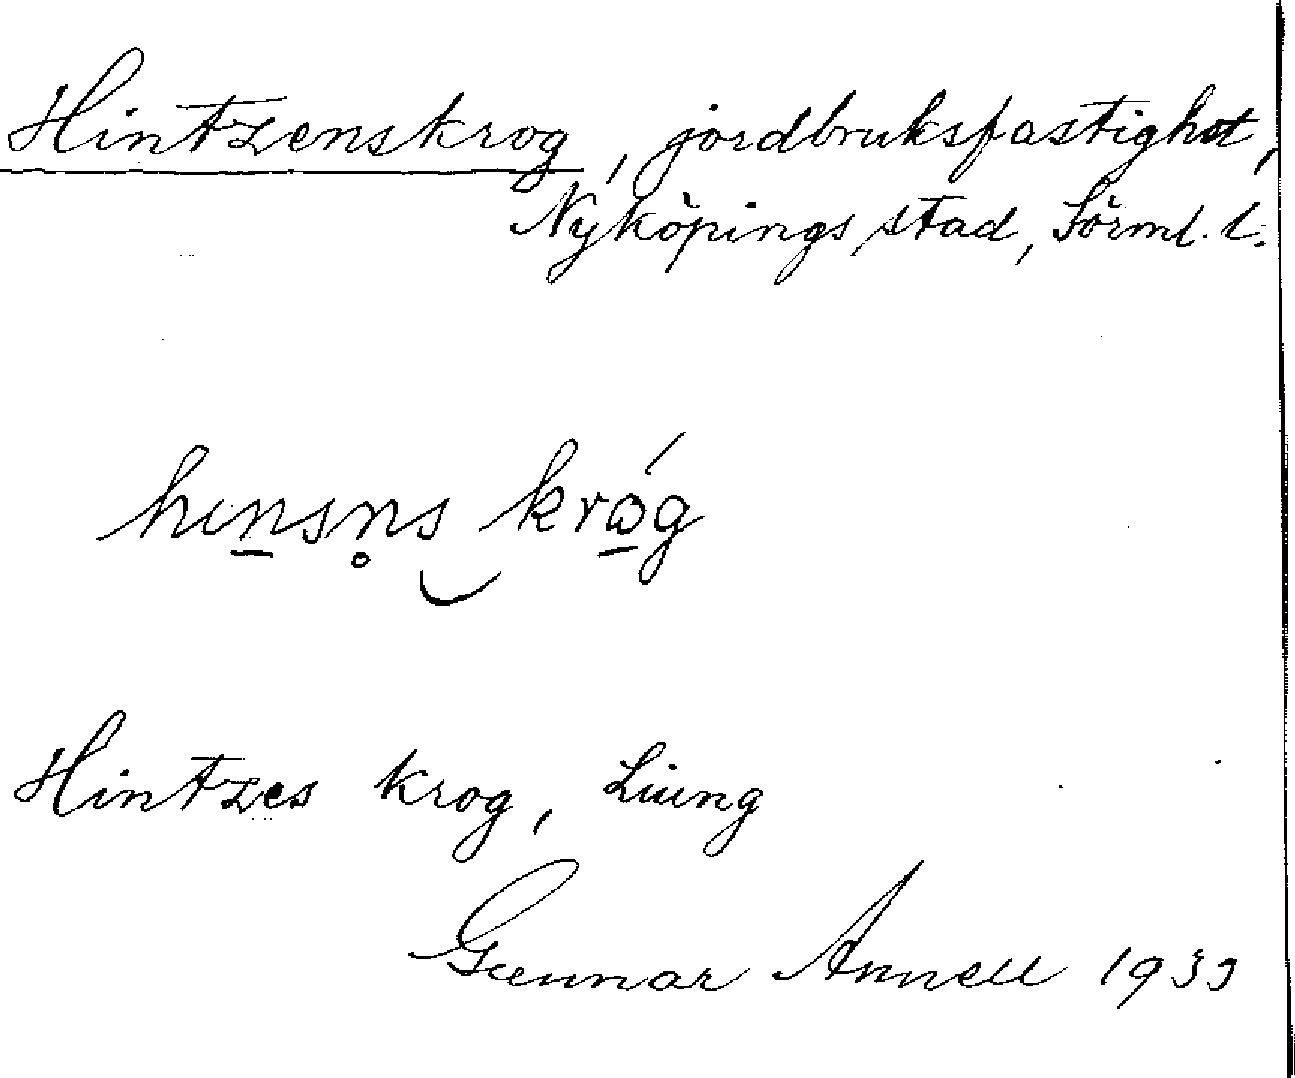 Hintzenskrog, jordbruksfastighet,
Nyköpings stad, Sörml. l.
hı̣n̠sn̥s‿krǿg
Hintzes krog, Liung
Gunnar Annell 1939